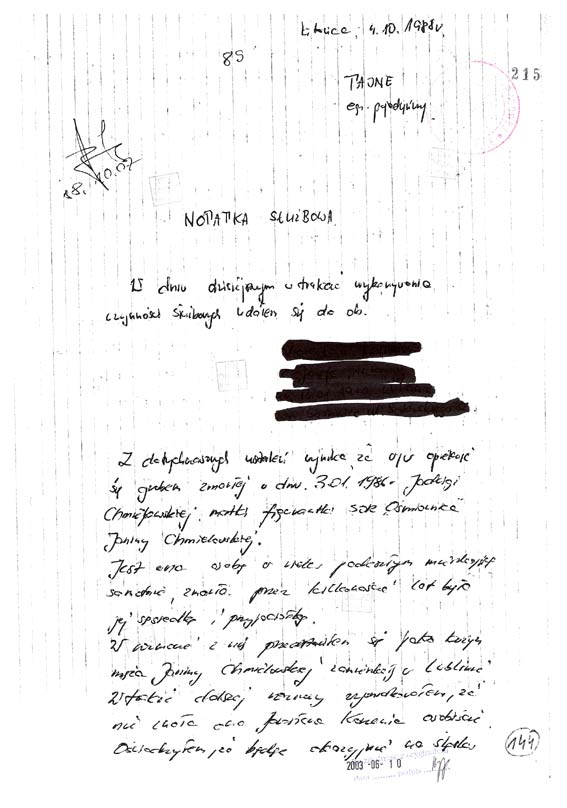 4.10.1988r.
89
TAJNE
egz. pojedynczy
215
18.10.07
NOTATKA SŁUŻBOWA
W dniu dzisiejszym w trakcie wykonywania
czynności służbowych udałem się do ob.
Z dotychczasowych ustaleń wynika że opiekuje
się grobem zmarłej w dniu 3.01.1986r Jadwigi
Chmielowskiej matki figurantki
Janiny Chmielowskiej.
Jest ona osobą w wieku podeszłym
samotną, znała przez kilkanaście lat była
jej sąsiadką i przyjaciółką.
W rozmowie z nią przedstawiłem się jako kuzyn
męża Janiny Chmielowskiej zamieszkały w Lublinie
W trakcie dalszej rozmowy wywnioskowałem, że
nie znała ona Jarosława osobiście.
Oświadczyłem, że będąc na Śląsku
144
2003 -06- 10